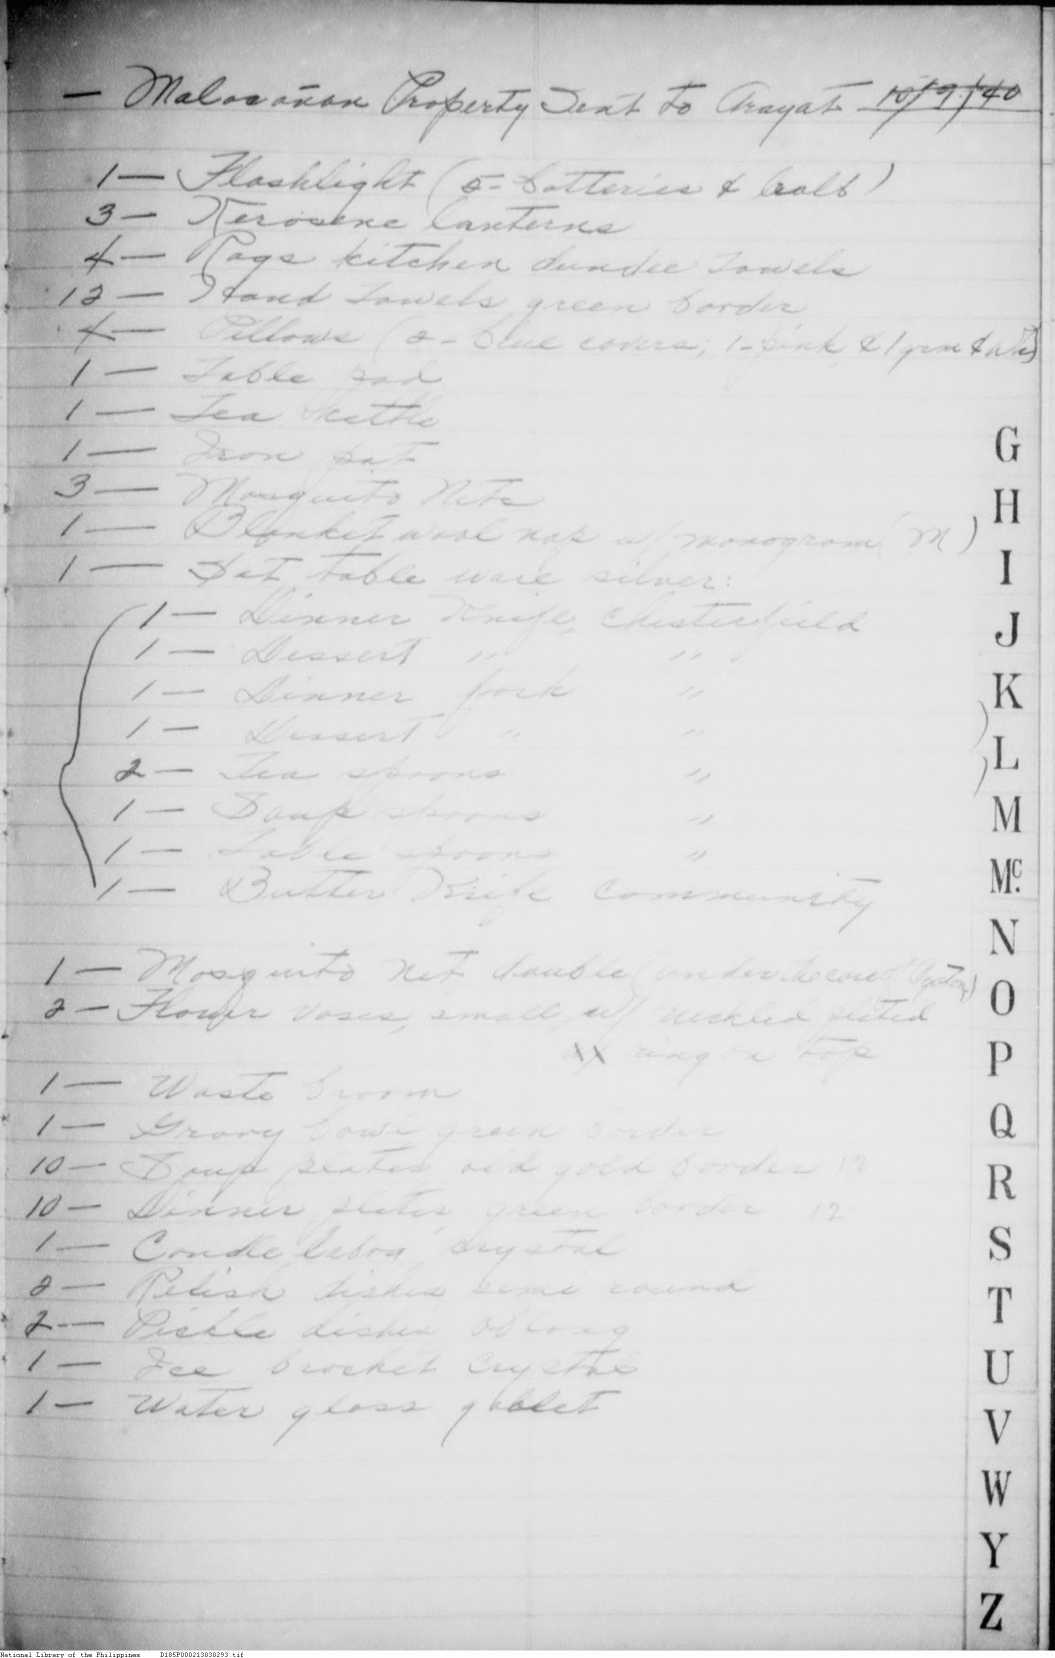 — Malacañan Property Sent to Arayat 10/9/40
1 — Flashlight (5 - batteries & bulb)
3 — Kerosene lanterns
4 — Rags kitchen dundee towels
12 — Hand towels green border
4 — Pillows (2 - blue covers, 1 - pink & 1 grn &
1 — Table pad
1 — Tea kettle
1 — Iron pot
3 — Mosquito Nets
1 — Blanket wool nap w/ monogram (M)
1 — Set table ware silver:
1 — Dinner Knife, Chesterfield
1 — Dessert " "
1 — Dinner fork "
1 — Dessert " "
2 — Tea spoons "
1 — Soup spoons "
1 — Table spoons "
1 — Butter Knife Community
1 — Mosquito net double (under
2 — Flower vases, small w/ nickled plated
xx ring on top
1 — Waste broom
1 — Gravy bowl green border
10 — Soup plates old gold border 12
10 — Dinner plates, green border 12
1 — Candle labra crystal
2 — Relish dishes semi round
2 — Pickle dishes oblong
1 — Ice brocket crystal
1 — Water glass goblet
G
H
I
J
K
L
M
Mc.
N
O
P
Q
R
S
T
U
V
W
Y
Z
National Library of the Philippines D185P000213030293.tif